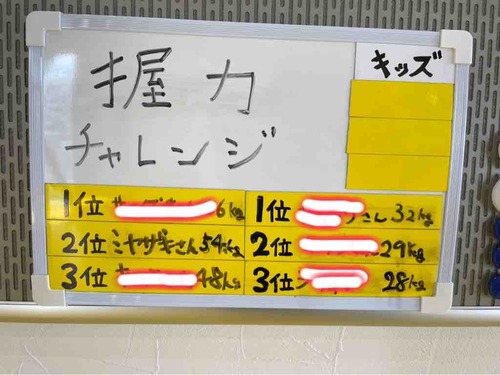 握力
チャレンジ
キッズ
1位 6kg
2位 ミヤザキさん 54kg
3位 48kg
1位 さん 32kg
2位 29kg
3位 28kg